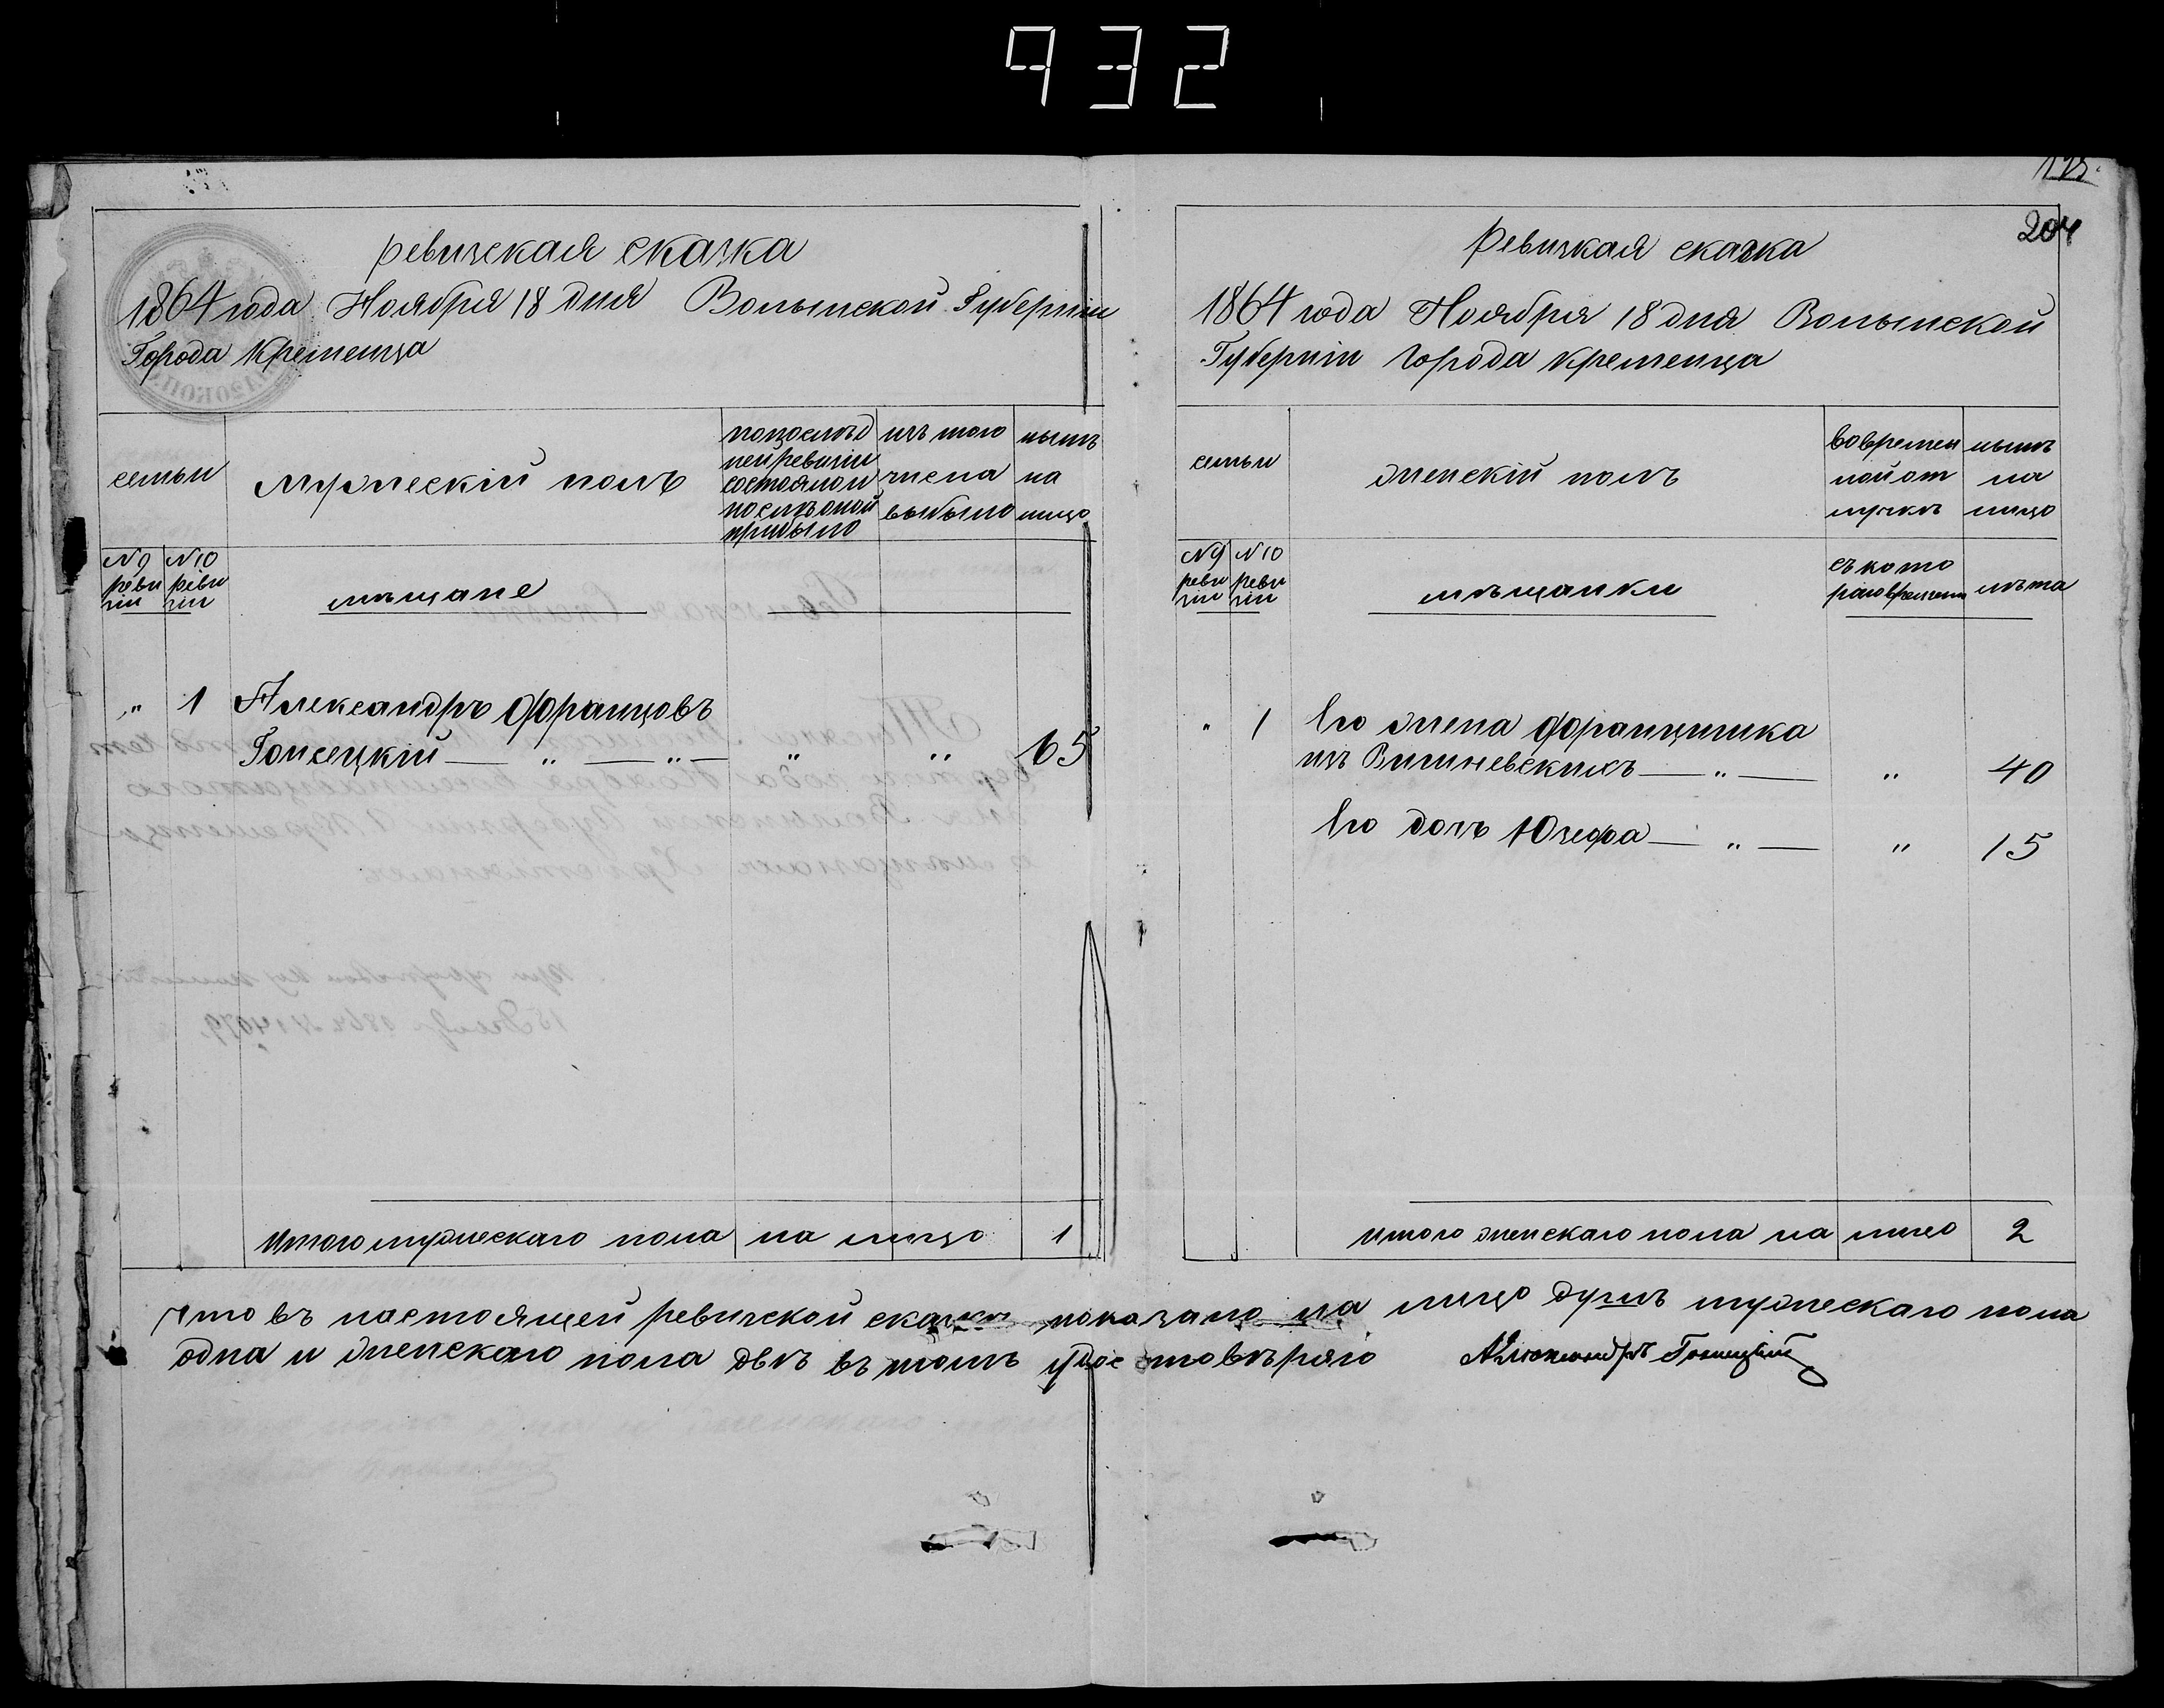 932
ревизская сказка
1864 года Ноября 18 дня Волынской Губернiи
Города Кременца
семьи
мужескiй полъ
попослѣд
ней ревизiи
состояло и
послѣ оной
прибыло
изъ того
числа
выбыло
нынѣ
на
лицо
N9 N10
реви реви
зiи зiи
мѣщане
" 1 Александръ Францовъ
Гонсецкiй — " — " — " " 65
Итого мужескаго пола на лицо 1
204
ревизкая сказка
1864 года Ноября 18 дня Волынской
Губернiи города Кременца
семьи
женскiй полъ
во времен
ной от
лучкѣ
нынѣ
на
лицо
N9 N10
реви реви
зiи зiи
мѣщанки
съ кото
раго времени
лѣта
" 1 Его жена Францишка
изъ Вишневскихъ — " — " 40
Его дочь Юзефа — " — " 15
итого женскаго пола на лицо 2
Что въ настоящей ревизской сказки показано на лицо душъ мужескаго пола
одна и женскаго пола двѣ въ томъ удостовѣряю Александръ Гонсецкiй